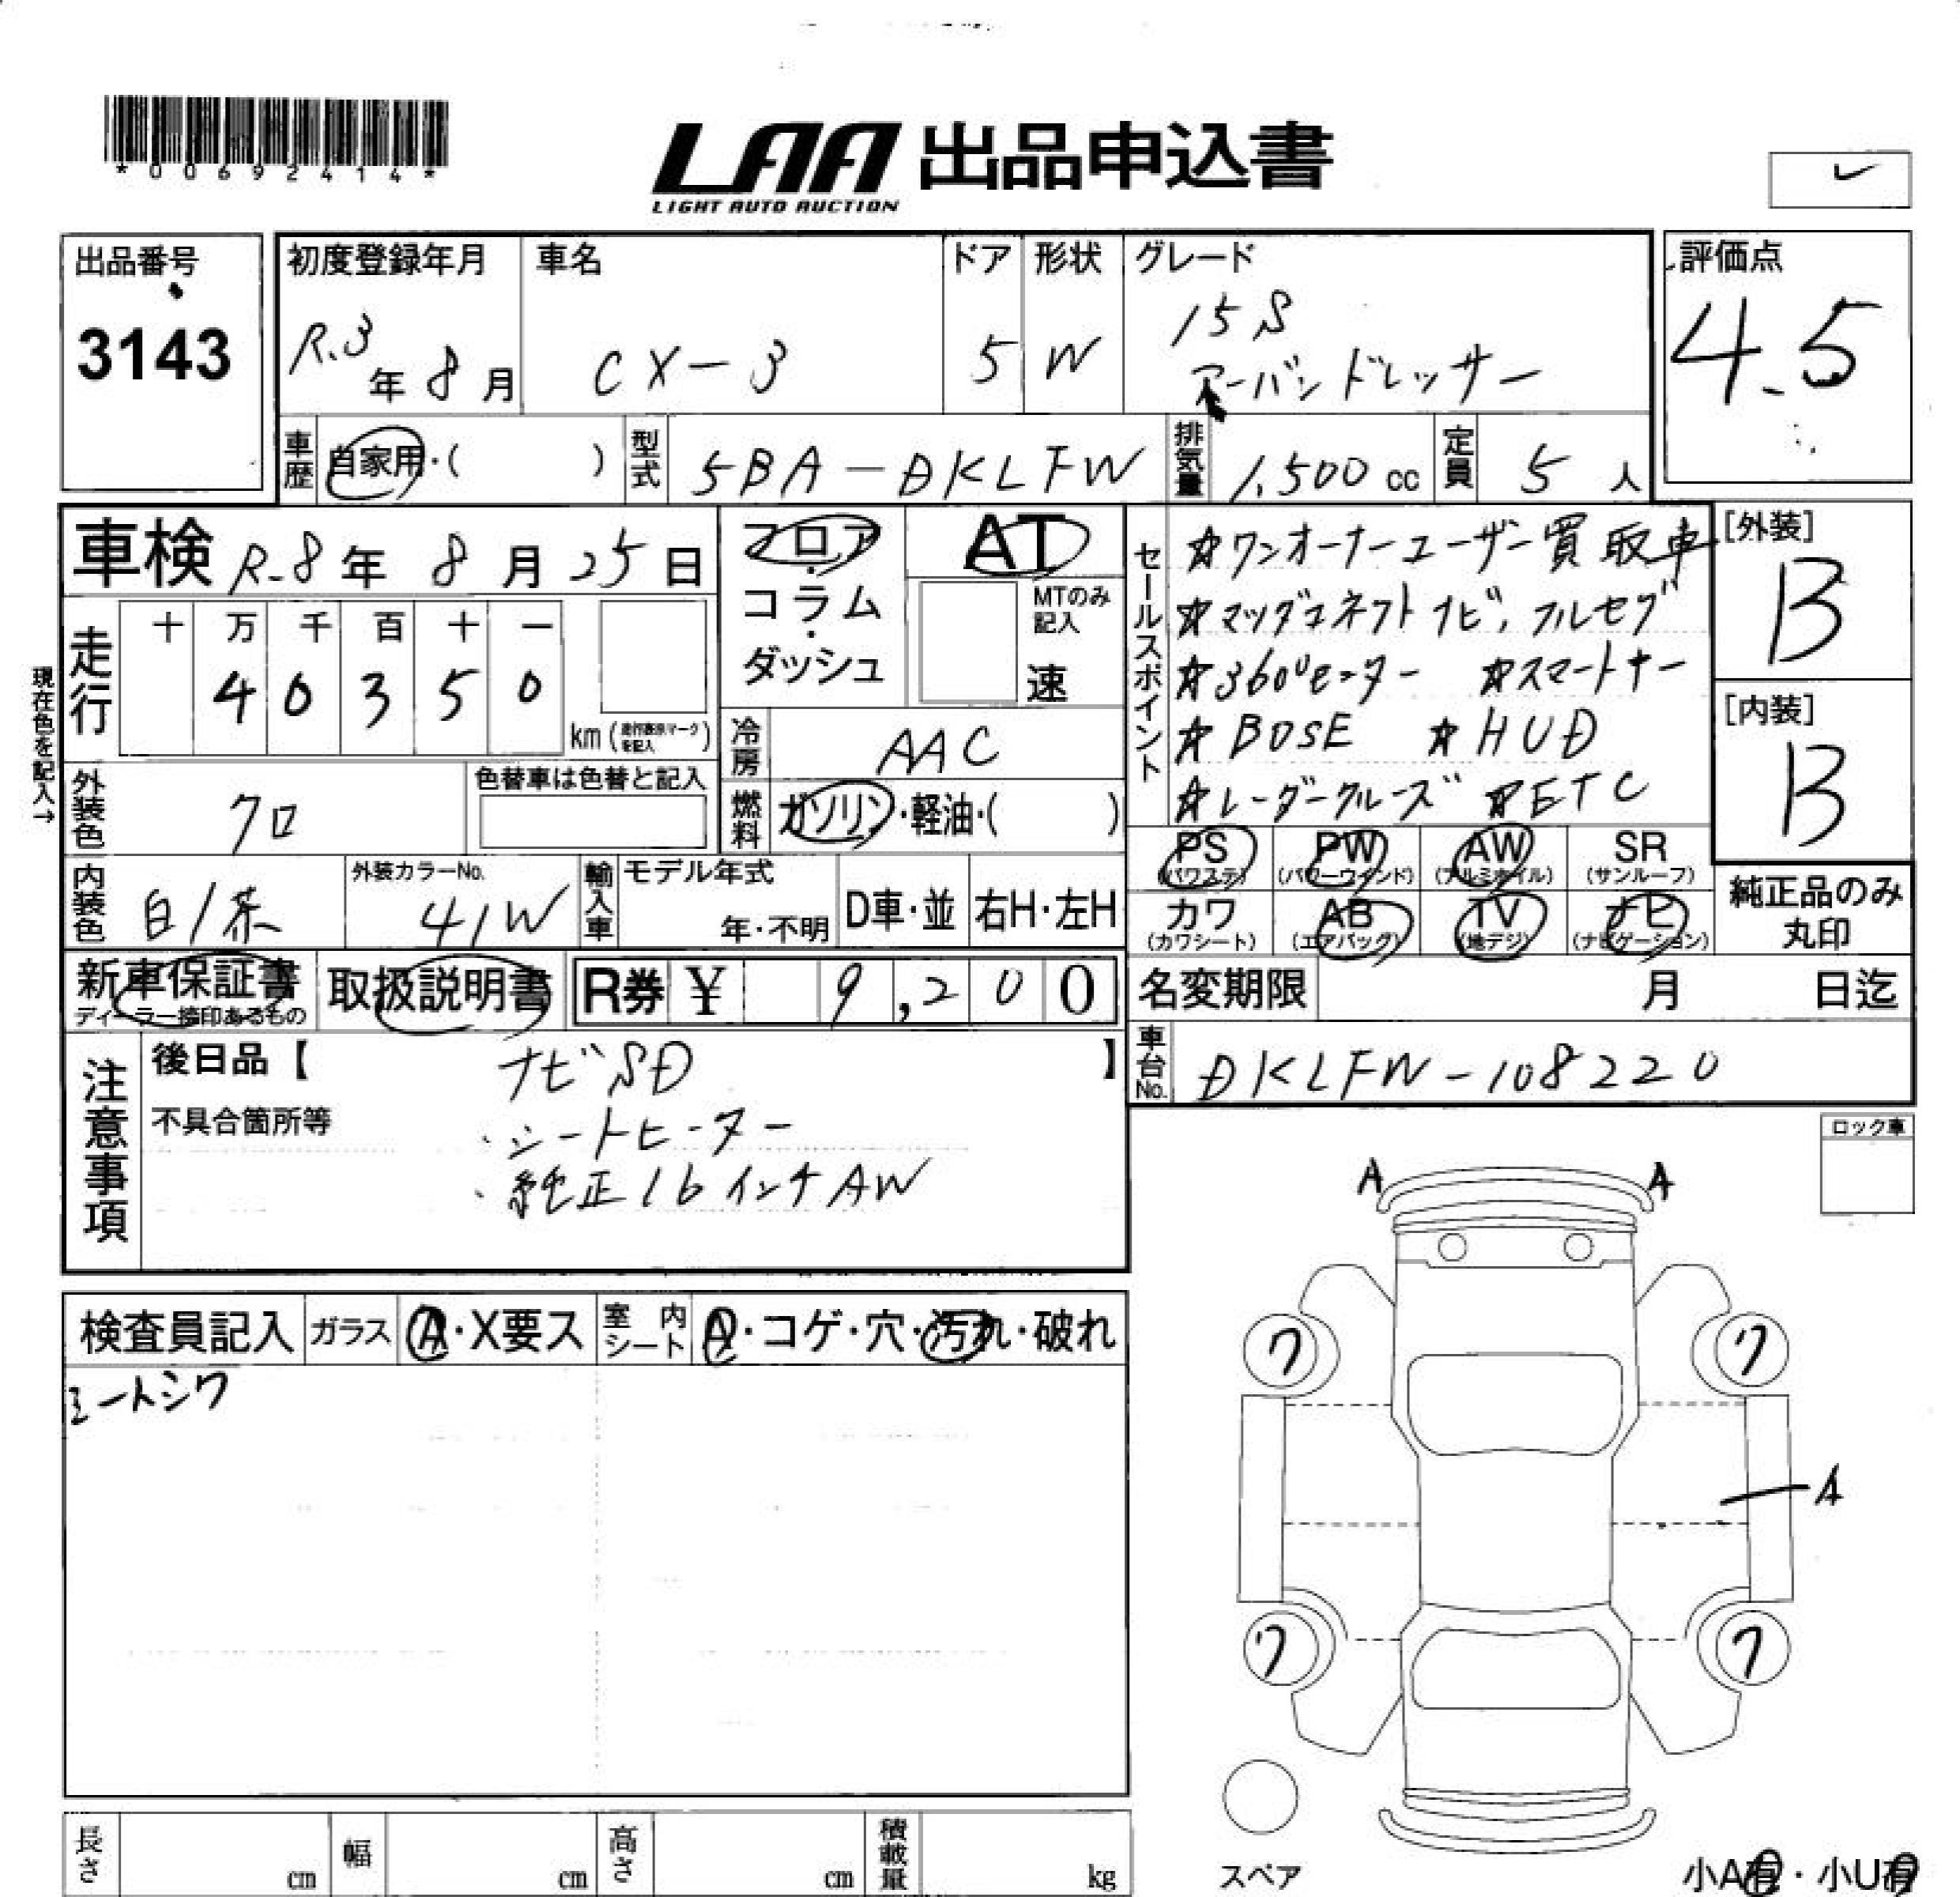 *00692414*
LAA 出品申込書
LIGHT AUTO AUCTION
出品番号
3143
初度登録年月
R.3年 8月
車名
CX-3
ドア
5
形状
W
グレード
15S
アーバンドレッサー
評価点
4.5
車歴 自家用・( )
型式 5BA-DKLFW
排気量 1,500 cc
定員 5 人
車検 R.8年 8月 25日
フロア・コラム・ダッシュ
AT
MTのみ記入
速
走行
十 万 千 百 十 一
4 0 3 5 0
km
現在色を記入→
冷房 AAC
燃料 ガソリン・軽油・( )
外装色 クロ
色替車は色替と記入
内装色 白/茶
外装カラーNo.
41W
輸入車
モデル年式
年・不明
D車・並
右H・左H
セールスポイント
☆ワンオーナーユーザー買取車
☆マツダコネクトナビ,フルセグ
☆360°モニター ☆スマートキー
☆BOSE ☆HUD
☆レーダークルーズ ☆ETC
[外装]
B
[内装]
B
PS (パワステ)
PW (パワーウインド)
AW (アルミホイル)
SR (サンルーフ)
カワ (カワシート)
AB (エアバッグ)
TV (地デジ)
ナビ (ナビゲーション)
純正品のみ丸印
新車保証書
ディーラー捺印あるもの
取扱説明書
R券 ¥ 9,200
名変期限 月 日迄
車台No. DKLFW-108220
注意事項
後日品【 ナビSD 】
不具合箇所等
・シートヒーター
・純正16インチAW
ロック車
検査員記入
ガラス A・X要ス
室内シート A・コゲ・穴・汚れ・破れ
シートシワ
A A
ワ ワ
A
ワ ワ
スペア
小A有・小U有
長さ cm
幅 cm
高さ cm
積載量 kg